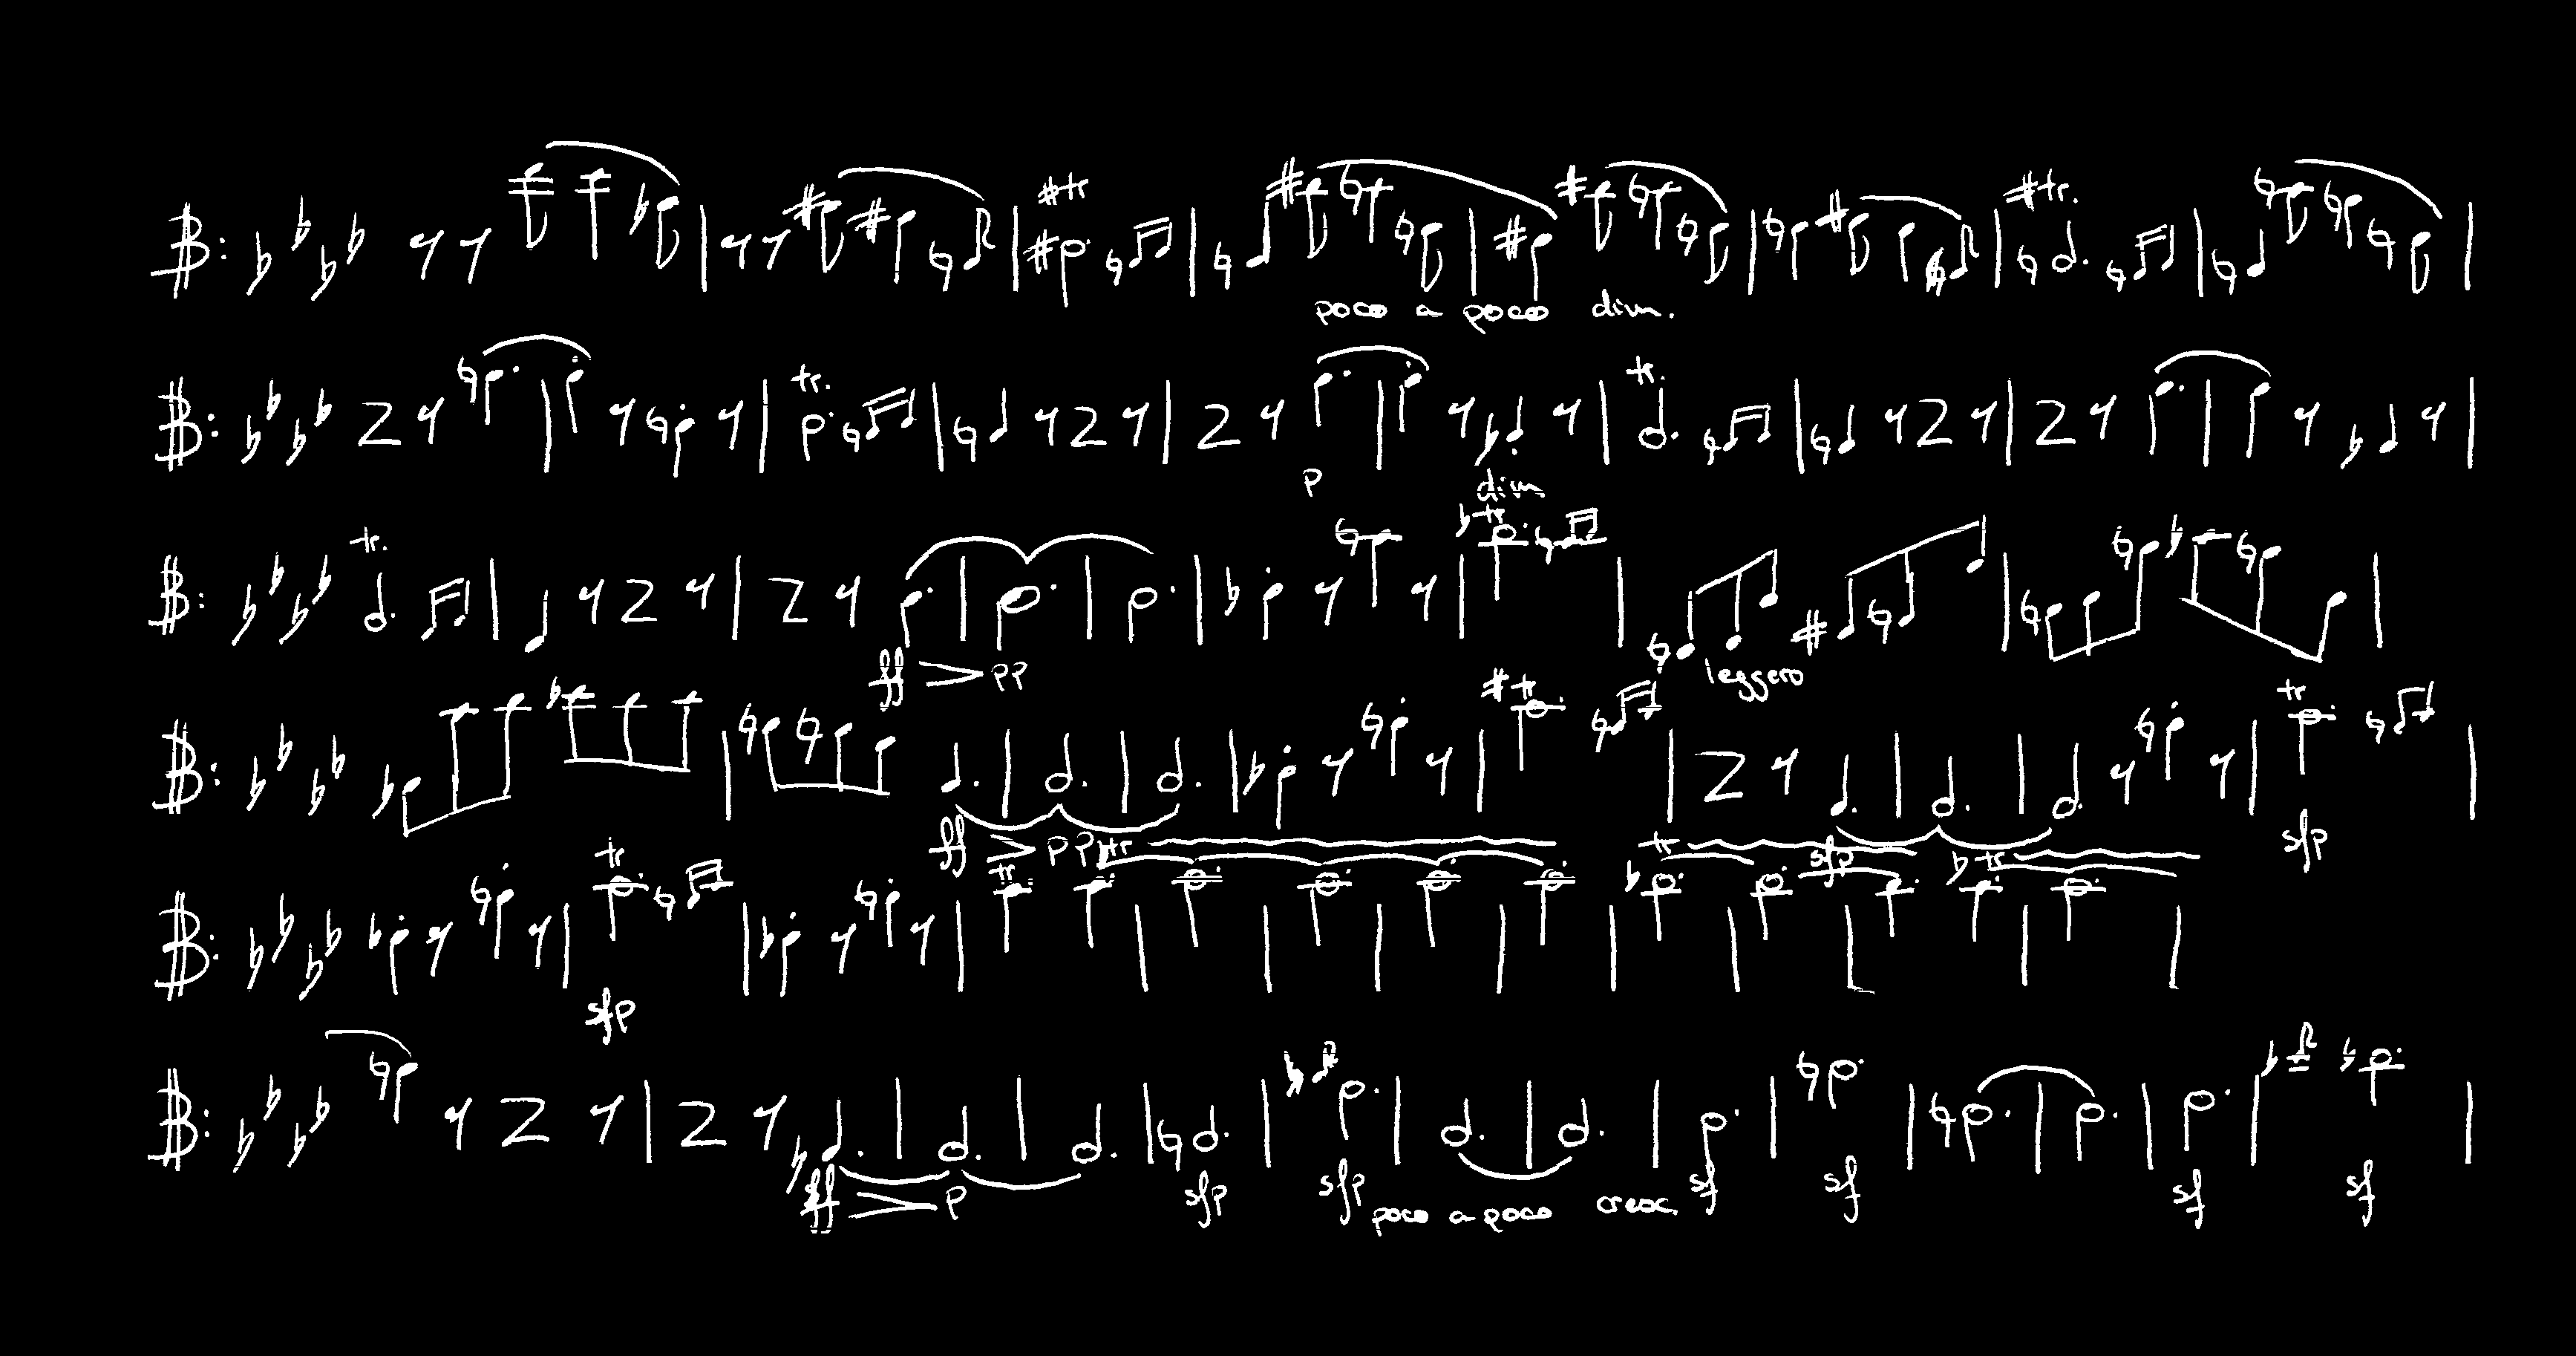 tr
poco a poco dim.
tr.
tr.
tr.
p
dim
tr.
tr
ff pp
leggero
tr
tr
ff pp tr
tr
sfp
sfp
tr
tr
tr
sfp
ff p
sfp
sfp
poco a poco cresc.
sf
sf
sf
sf